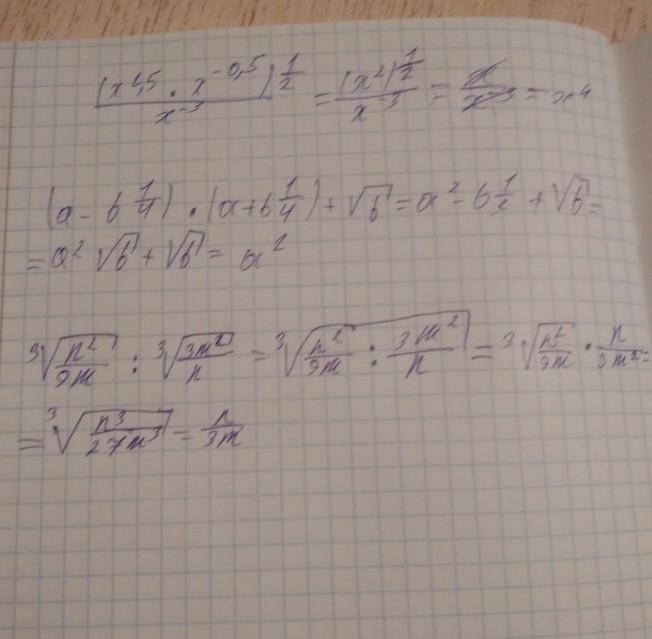 (x^4,5 · x^-0,5)^1/2 / x^-3 = (x^2)^1/2 / x^-3 = x / x^-3 = x^4
(a - b^1/4) · (a + b^1/4) + √b = a^2 - b^1/2 + √b =
= a^2 √b + √b = a^2
³√(n^2/9m) : ³√(3m^2/n) = ³√(n^2/9m : 3m^2/n) = ³√(n^2/9m) · n/3m^2 =
= ³√(n^3/27m^3) = n/3m